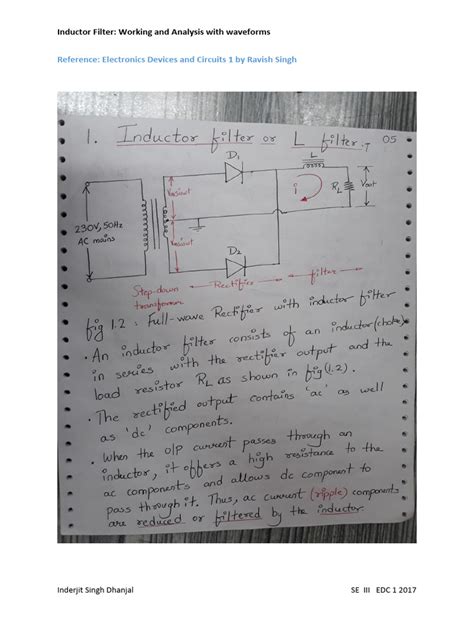 Inductor Filter: Working and Analysis with waveforms
Reference: Electronics Devices and Circuits 1 by Ravish Singh
1. Inductor filter or L filter.
05
D1
L
Vmsinωt
i
RL
Vout
230V, 50Hz
AC mains
Vmsinωt
D2
Step-down
transformer
Rectifier
filter
fig 1.2 : Full-wave Rectifier with inductor filter
• An inductor filter consists of an inductor (choke)
in series with the rectifier output and the
load resistor RL as shown in fig(1.2).
• The rectified output contains 'ac' as well
as 'dc' components.
• When the O/P current passes through an
inductor, it offers a high resistance to the
ac components and allows dc component to
pass through it. Thus, ac current (ripple) components
are reduced or filtered by the inductor
Inderjit Singh Dhanjal
SE III EDC 1 2017